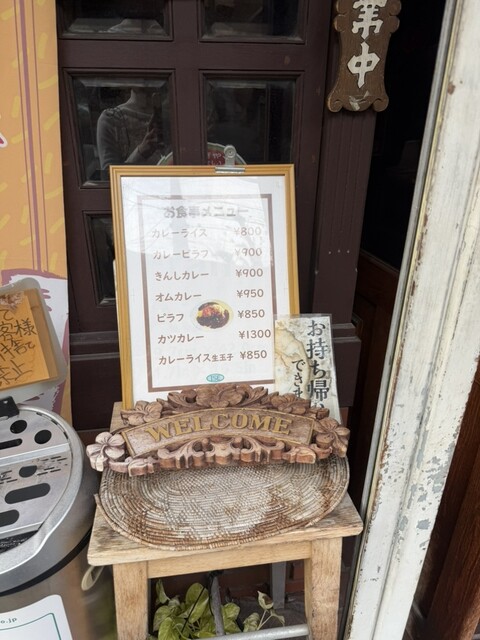 業中
お食事メニュー
カレーライス ¥800
カレーピラフ ¥900
きんしカレー ¥900
オムカレー ¥950
ピラフ ¥850
カツカレー ¥1300
カレーライス生玉子 ¥850
お持ち帰
できま
WELCOME
客様